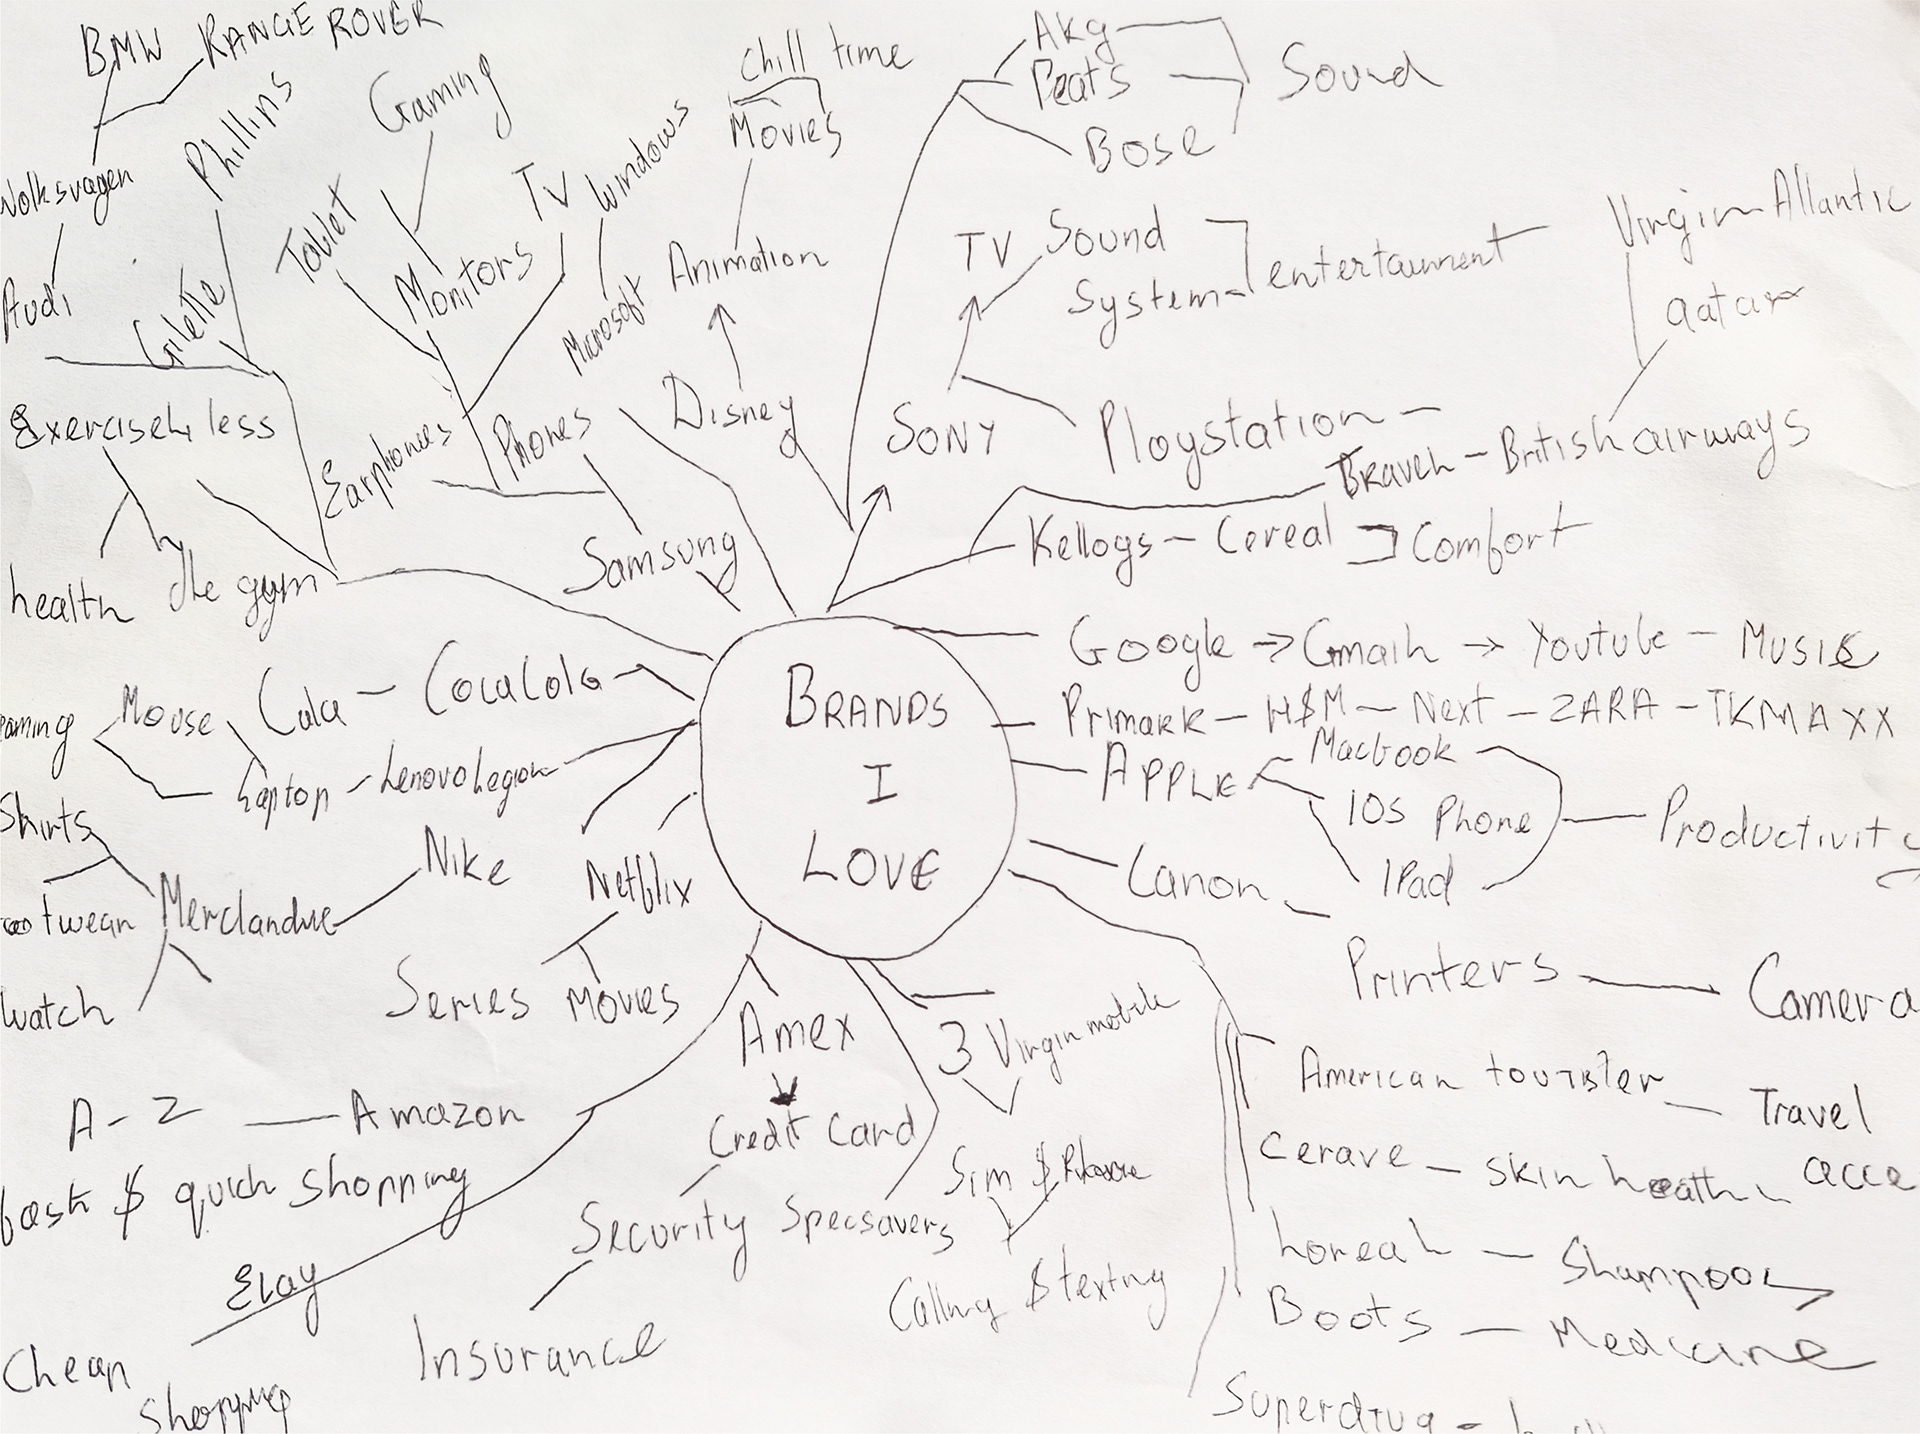 BMW RANGE ROVER
Volksvagen
Audi
Phillips
Gilette
Exercise4less
health
the gym
Tablet
Gaming
Monitors
TV
Windows
Microsoft
Earphones
Phones
Samsung
Chill time
Movies
Animation
Disney
Akg
Beats
Bose
Sound
TV Sound
System
entertainment
SONY
Playstation
Virgin Atlantic
Qatar
Travel - British airways
Kellogs - Cereal
Comfort
BRANDS
I
LOVE
Google → Gmail → Youtube - MUSIC
Primark - H$M - Next - ZARA - TKMAXX
APPLE
Macbook
IOS Phone
IPad
Productivity
Canon
Printers
Camera
American tourister
Travel
acce
Cerave - skin health
Loreal - Shampoos
Boots - Medicine
Superdrug -
3 Virgin mobile
Sim $
Calling $ texting
Specsavers
Amex
Credit Card
Security
Insurance
Netflix
Series Movies
CocaCola - Cola
Lenovo Legion - Laptop
Mouse
aming
Nike
Merchandise
Shirts
ootwear
Watch
Amazon
A-Z
fast $ quick shopping
Ebay
Cheap
Shopping